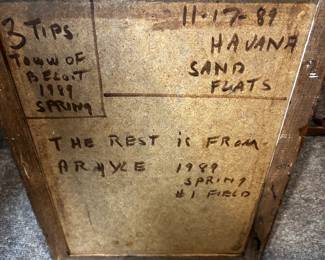 3 TIPS
TOWN OF
BELOIT
1989
SPRING
11-17-89
HAVANA
SAND
FLATS
THE REST is FROM
ARGYLE 1989
SPRING
#1 FIELD